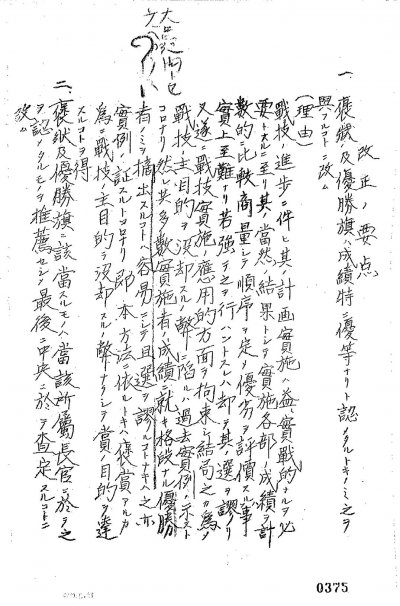 改正ノ要点
一、褒状及優勝旗ハ成績特ニ優等ナリト認メタルトキノミ之ヲ
與フルコトニ改ム
(理由)
戰技ノ進歩ニ伴ヒ其ノ計画實施ハ益々實戰的ナルヲ必
要トスルニ至リ其ノ當然ノ結果トシテ實施各部ノ成績ヲ計
數的ニ比較商量シテ順序ヲ定メ優劣ヲ評價スル事
實上至難ナリ若強テ之ヲ行ハントスレハ却テ其ノ選ヲ謬リ
又遂ニ戰技實施ノ應用的方面ヲ拘束シ結局之カ為メ
戰技ノ主目的ヲ没却スルノ弊ニ陥ルハ過去ノ實例ノ示ス
コロナリ然レ共多數實施者ノ成績ニ就キ格段ナル優勝
者ノミヲ摘出スルコトハ容易ニシテ且選ヲ謬ルコトナキハ之亦
實例ノ証スルトコロナリ即本方法ニ依ルトキハ褒賞アルカ
為ニ戰技ノ主目的ヲ没却スルノ弊ナクシテ賞ノ目的ヲ達
スルコトヲ得
二、褒状及優勝旗ニ該當スルモノハ當該所屬長官ニ於テ之
ヲ認メタルモノヲ推薦セシメ最後ニ中央ニ於テ査定スルコトニ
改ム
0375